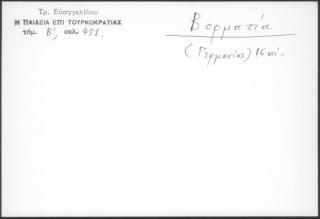 Τρ. Εὐαγγελίδου
Η ΠΑΙΔΕΙΑ ΕΠΙ ΤΟΥΡΚΟΚΡΑΤΙΑΣ
τόμ. Β', σελ. 451.
Βορματία
(Γερμανίας) 16 αἰ.